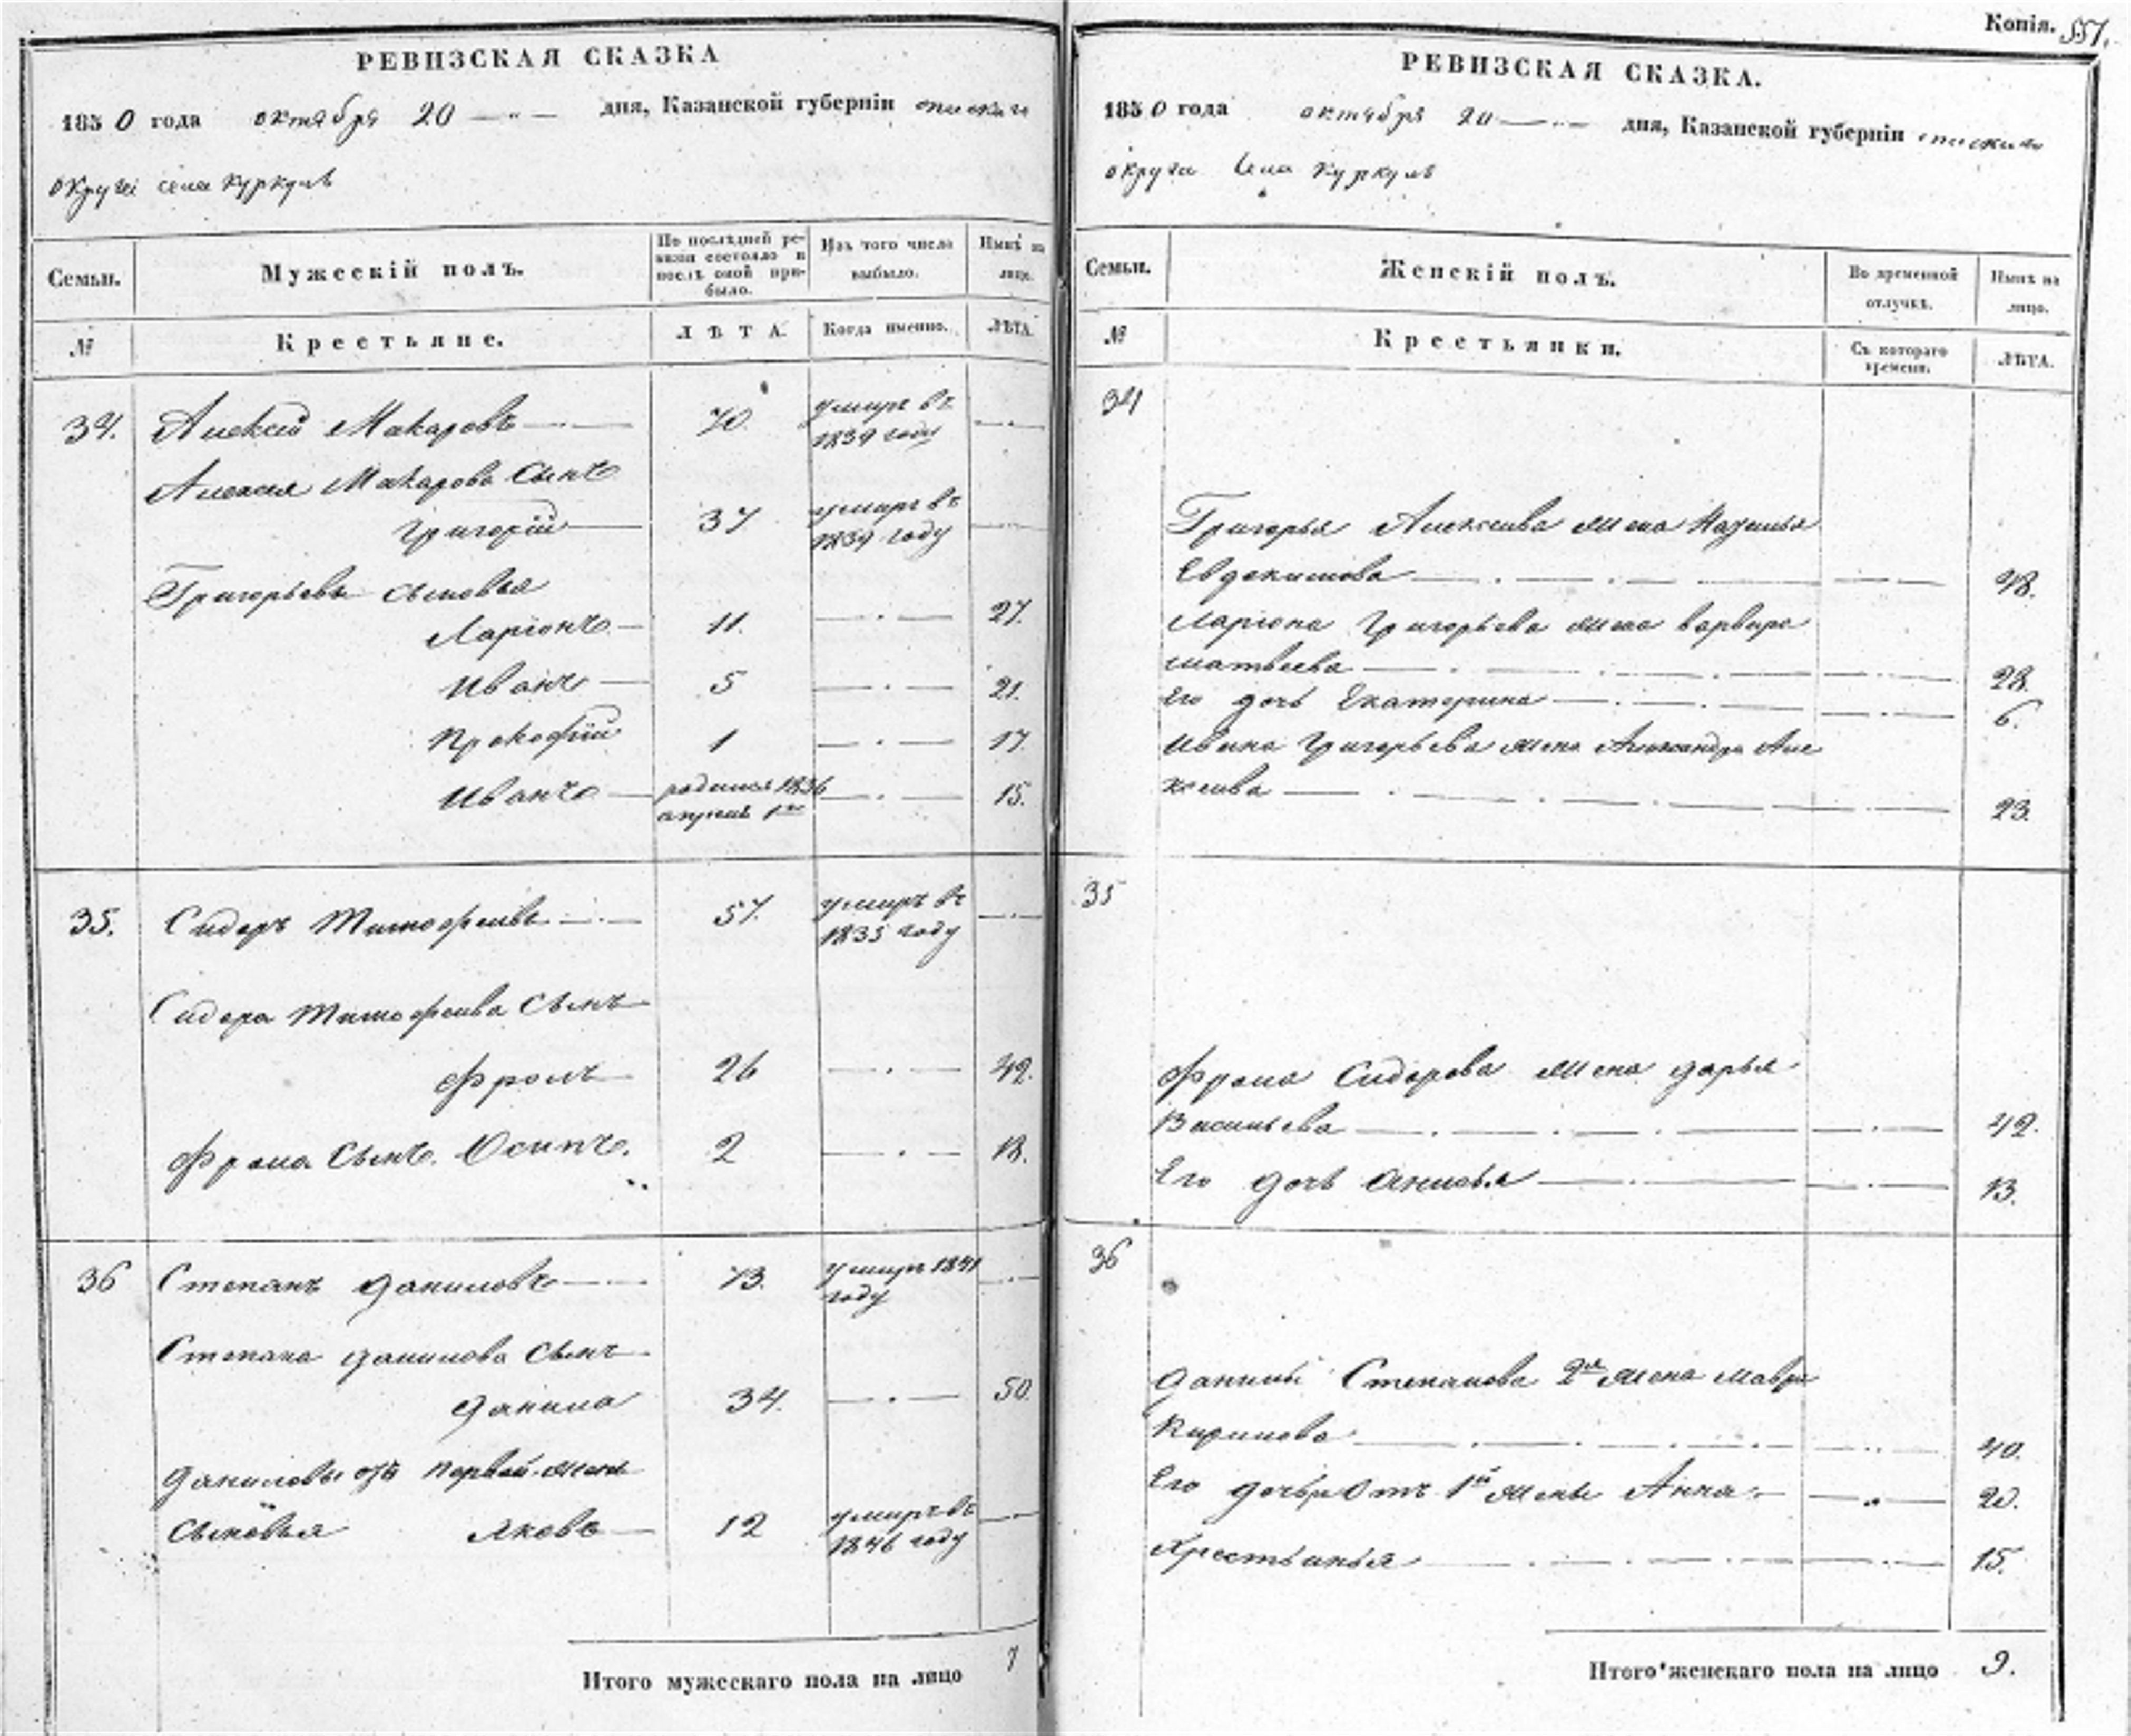 РЕВИЗСКАЯ СКАЗКА
1850 года октября 20 — „ — дня, Казанской губернiи спаскаго
округи села Куркуль
Семьи.
Мужескiй полъ.
По послѣдней ре-
визiи состояло и
послѣ оной при-
было.
Изъ того числа
выбыло.
Нынѣ на
лицо.
№
Крестьяне.
ЛѢТА.
Когда именно.
ЛѢТА.
34. Алексѣй Макаровъ 70. умиръ въ
1839 году
Алексея Макарова Сынъ
Григорiй 37 умиръ въ
1839 году
Григорьевы сыновья
Ларiонъ 11. 27.
Иванъ 5 21.
Прокофiй 1 17.
Иванъ родился 1836
апреля 1го 15.
35. Сидоръ Тимофеивъ 57. умиръ въ
1835 году
Сидора Тимофеива Сынъ
Фролъ 26 42.
Фрола Сынъ. Осипъ. 2 18.
36 Степанъ Даниловъ 73. умиръ 1841
году
Степана Данилова Сынъ
Данила 34. 50.
Даниловы отъ первой жены
Сыновья Яковъ 12 умиръ въ
1846 году
Итого мужескаго пола на лицо 7
Копiя. 557.
РЕВИЗСКАЯ СКАЗКА.
1850 года октября 20 — „ — дня, Казанской губернiи спаскаго
округи Села Куркуль
Семьи.
Женскiй полъ.
Во временной
отлучкѣ.
Нынѣ на
лицо.
№
Крестьянки.
Съ котораго
времени.
ЛѢТА.
34
Григорья Алексеива жена Наталья
Евдокимова 48.
Ларiона Григорьева жена варвара
матвеева 28.
Его дочь Екатерина 6.
Ивана Григорьева жена Александра Але
ксеива 23.
35
Фрола Сидорова жена дарья
Васильева 42.
Его дочь Анисья 13.
36
Данилы Степанова 2я жена мавра
Кирилова 40.
Его дочьри Отъ 1й жены Анна 20.
Хрестинья 15.
Итого женскаго пола на лицо 9.